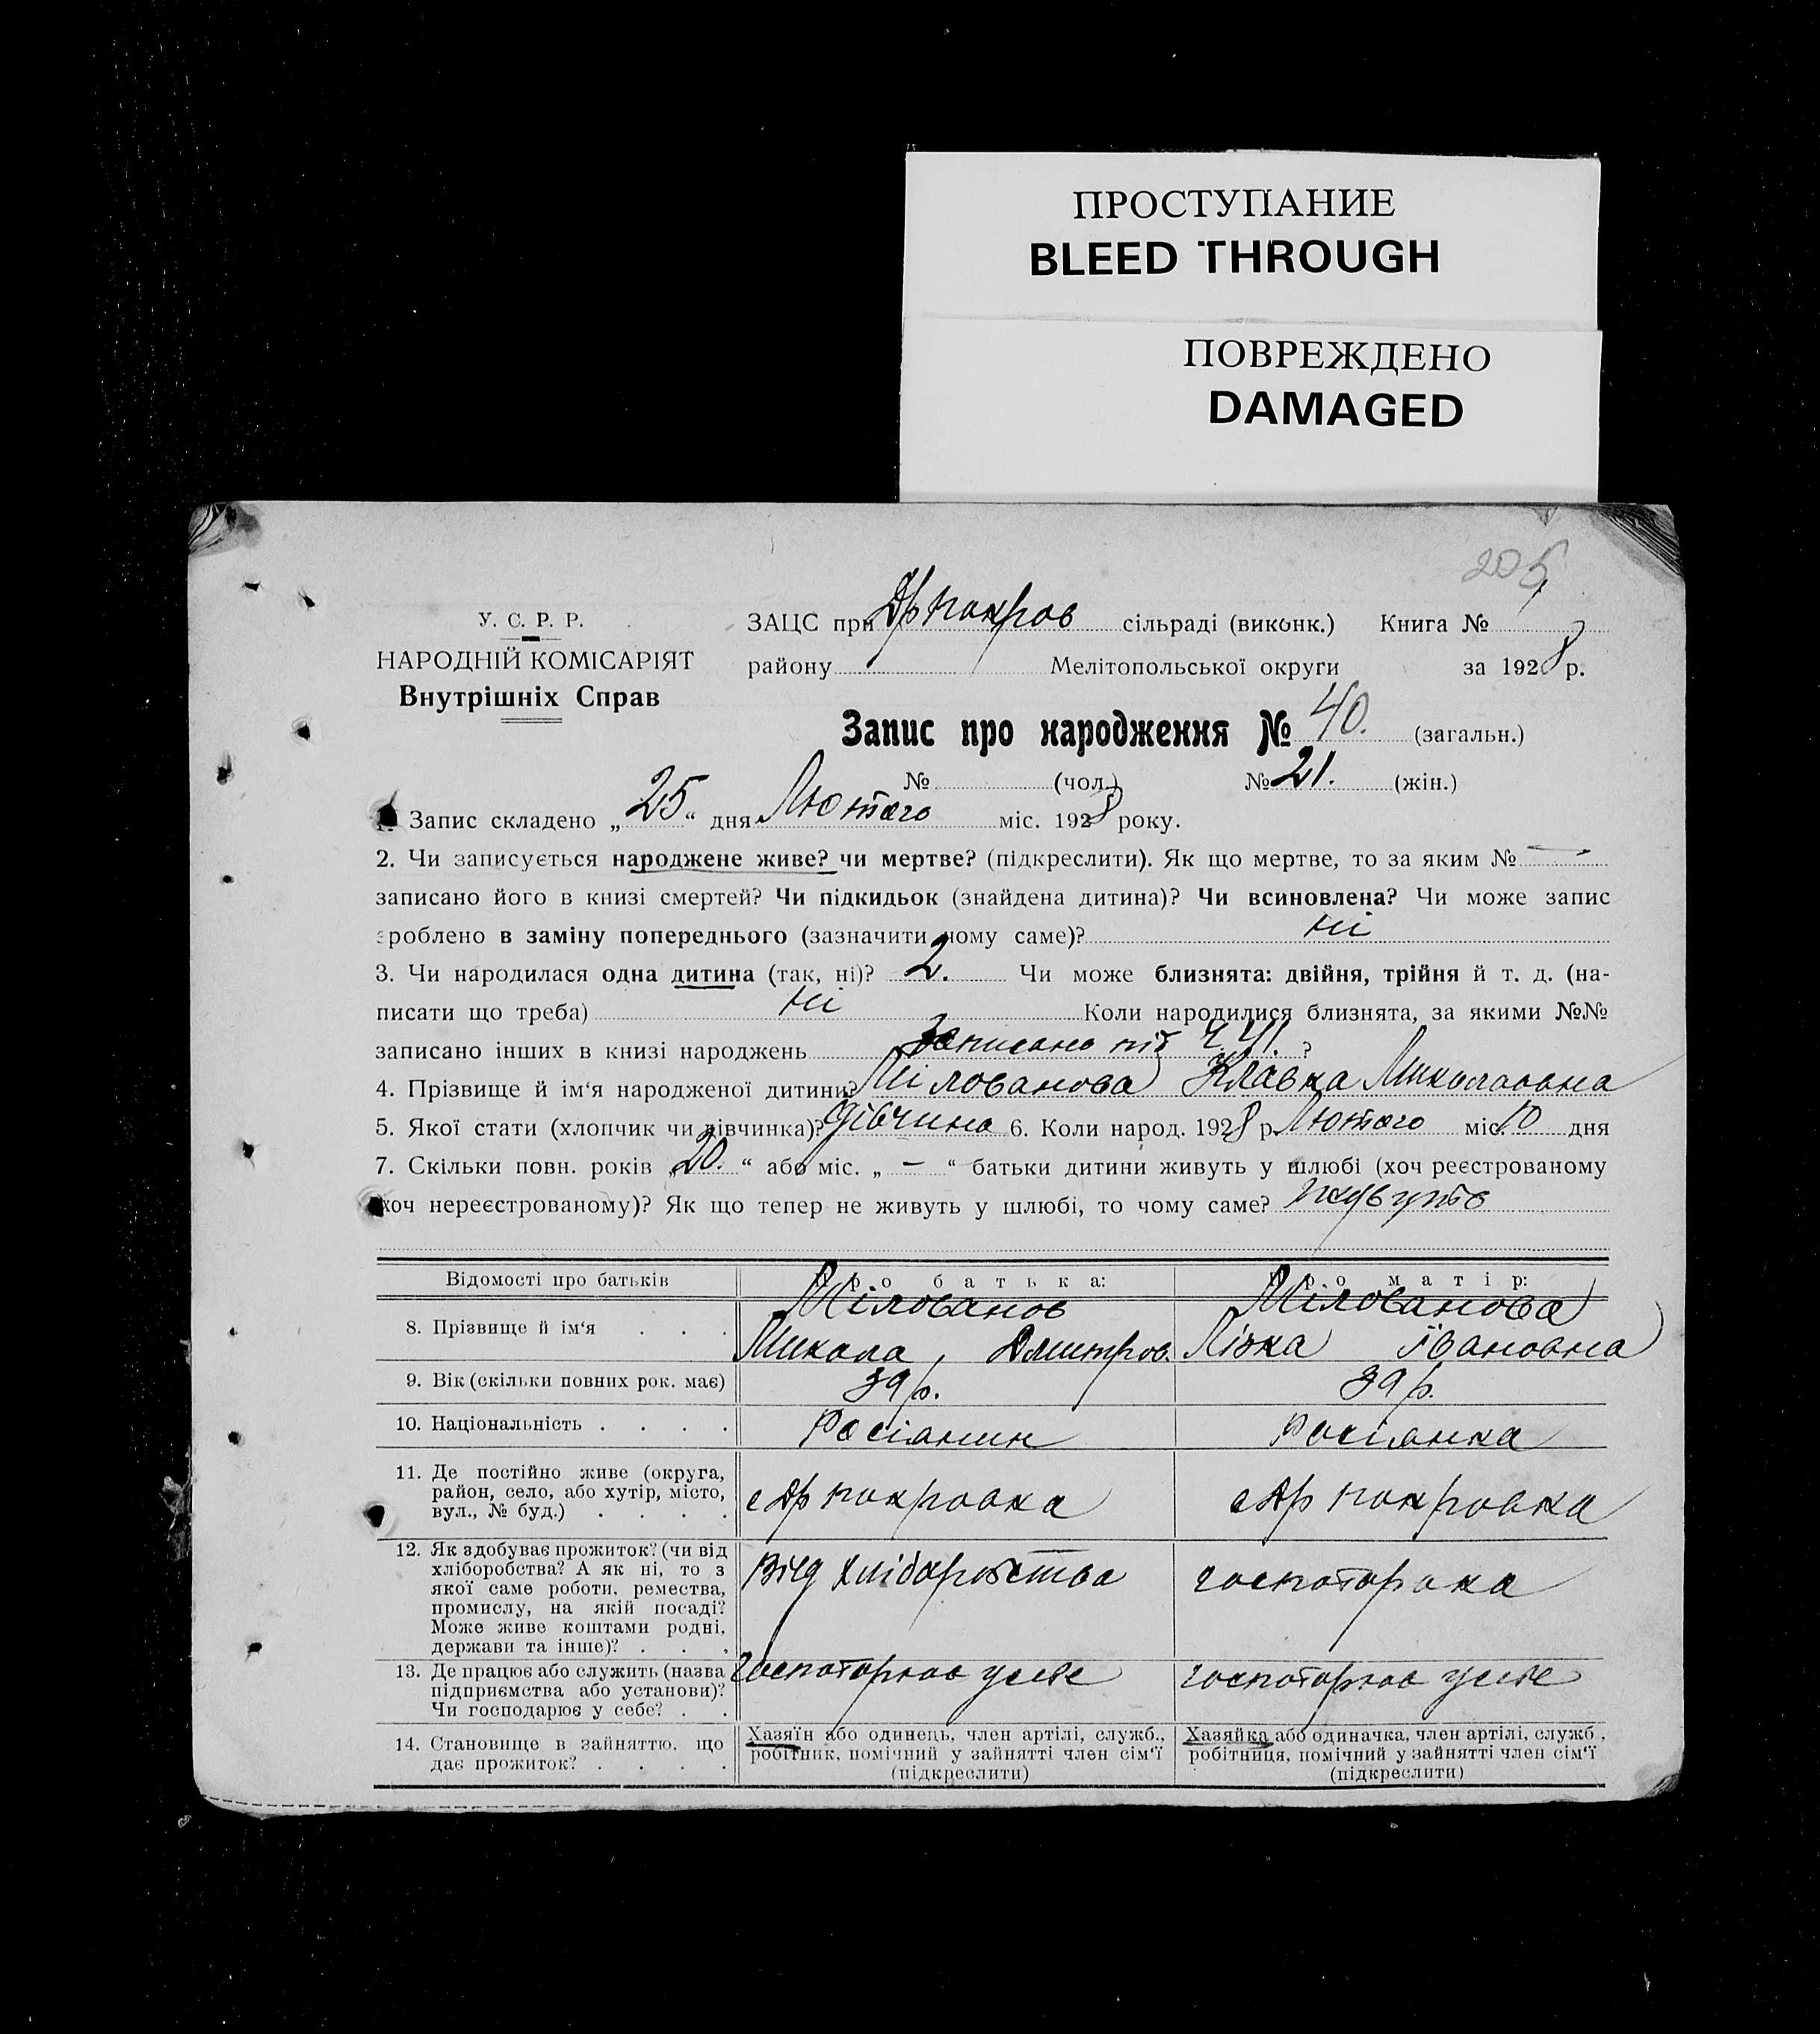 ПРОСТУПАНИЕ
BLEED THROUGH
ПОВРЕЖДЕНО
DAMAGED
205
У. С. Р. Р.
НАРОДНІЙ КОМІСАРІЯТ
Внутрішніх Справ
ЗАЦС при Др Покров сільраді (виконк.) Книга №
району Мелітопольської округи за 1928 р.
Запис про народження № 40. (загальн.)
№ (чол.) № 21. (жін.)
1. Запис складено „25“ дня Лютого міс. 1928 року.
2. Чи записується народжене живе? чи мертве? (підкреслити). Як що мертве, то за яким № —
записано його в книзі смертей? Чи підкидьок (знайдена дитина)? Чи всиновлена? Чи може запис
зроблено в заміну попереднього (зазначити чому саме)? ні
3. Чи народилася одна дитина (так, ні)? 2. Чи може близнята: двійня, трійня й т. д. (на-
писати що треба) ні Коли народилися близнята, за якими №№
записано інших в книзі народжень записано під Ч 41. ?
4. Прізвище й ім‘я народженої дитини? Мілованова Клавка Миколаовна
5. Якої стати (хлопчик чи дівчинка)? дівчина 6. Коли народ. 1928 р. Лютого міс. 10 дня
7. Скільки повн. років „20.“ або міс. „ — “ батьки дитини живуть у шлюбі (хоч реєстрованому
хоч нереєстрованому)? Як що тепер не живуть у шлюбі, то чому саме? живуть
Відомості про батьків Про батька: Про матір:
8. Прізвище й ім‘я . . . Мілованов Микола Дмитров. Мілованова Лізка Івановна
9. Вік (скільки повних рок. має) 39 р. 39 р.
10. Національність . . . . Росіанин Росіанка
11. Де постійно живе (округа,
район, село, або хутір, місто,
вул., № буд.) . . . . с Др Покровка с Др Покровка
12. Як здобуває прожиток? (чи від
хліборобства? А як ні, то з
якої саме роботи, ремества,
промислу, на якій посаді?
Може живе коштами родні,
держави та інше)? . . . Від хліборобства госпотарока
13. Де працює або служить (назва
підприємства або установи)?
Чи господарює у себе? . . госпотарюв усебе госпотарюв усебе
14. Становище в зайняттю, що
дає прожиток? . . . .
Хазяїн або одинець, член артілі, служб.,
робітник, помічний у зайнятті член сім‘ї
(підкреслити)
Хазяйка або одиначка, член артілі, служб.,
робітниця, помічний у зайнятті член сім‘ї
(підкреслити)